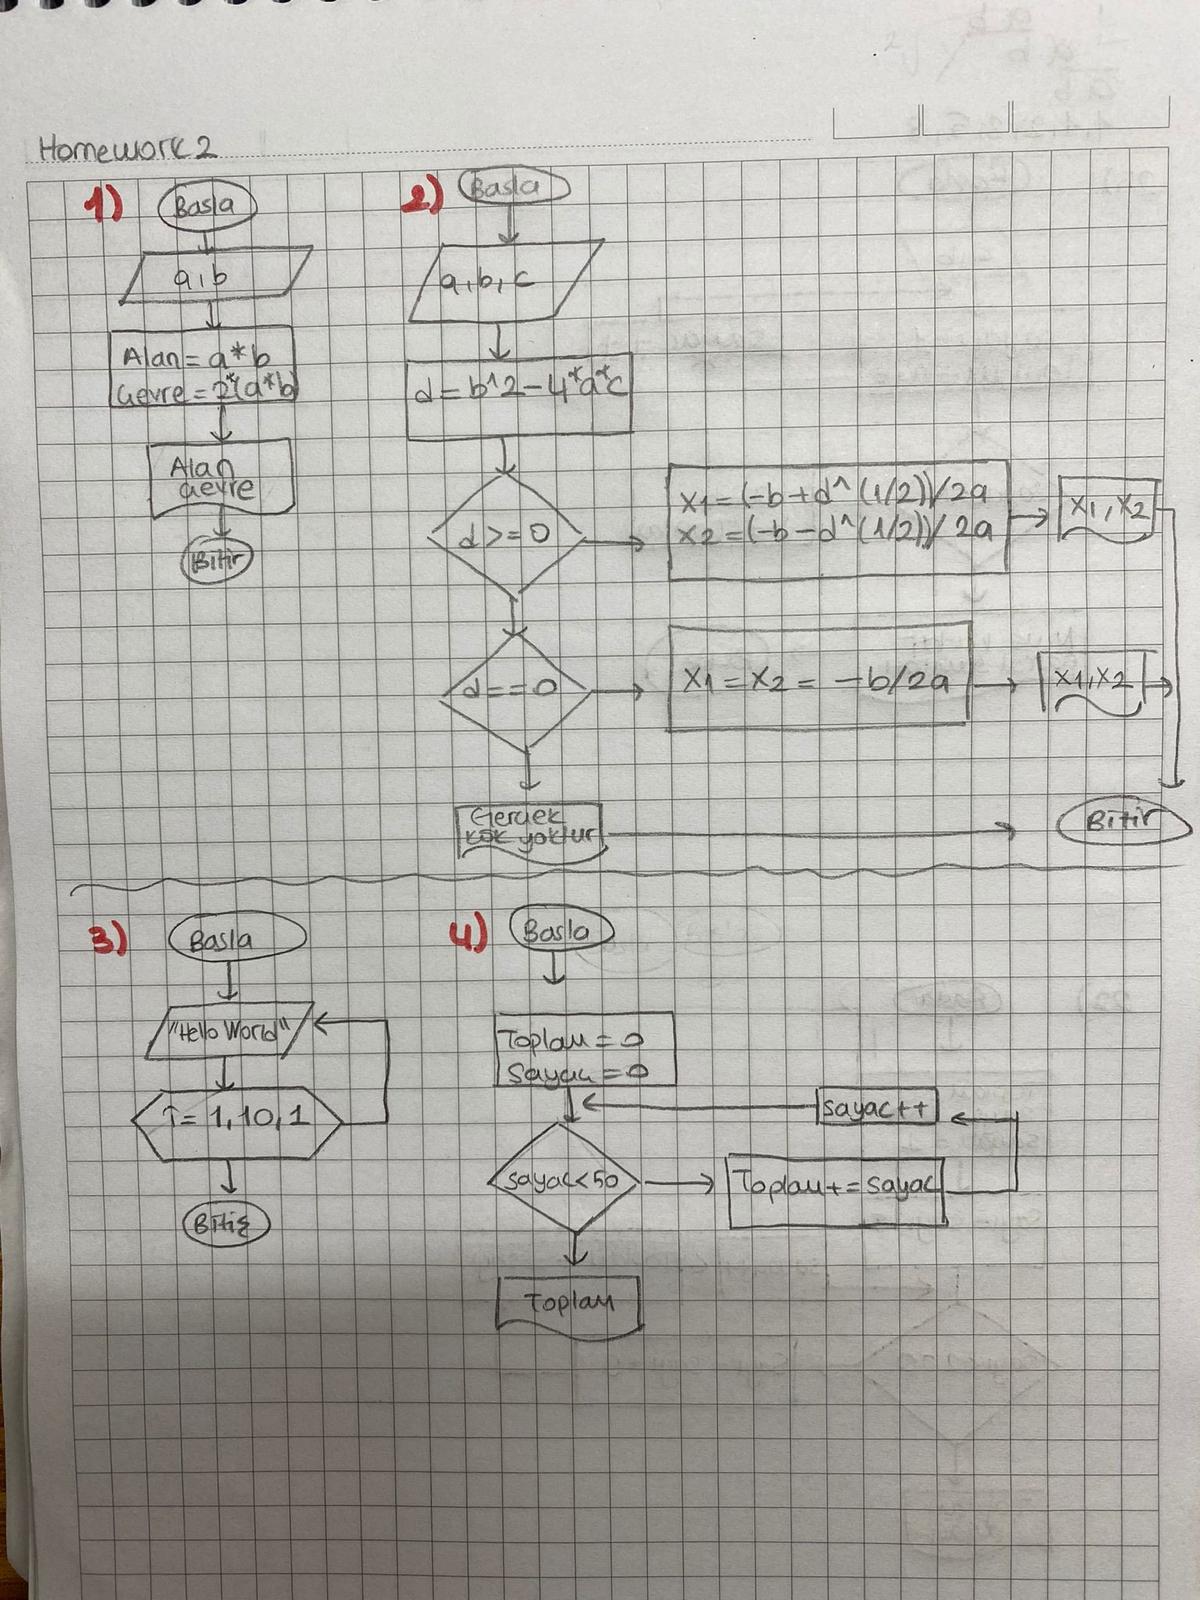 Homework 2
1)
Basla
a,b
Alan = a*b
Gevre = 2*(a*b)
Alan
Gevre
Bitir
2)
Basla
a,b,c
d = b^2 - 4*a*c
d >= 0
X1 = (-b+d^(1/2))/2a
X2 = (-b-d^(1/2))/2a
X1, X2
d == 0
X1 = X2 = -b/2a
X1, X2
Gercek
kök yoktur
Bitir
3)
Basla
"Hello World"
I = 1, 10, 1
Bitiş
4)
Basla
Toplam = 0
Sayac = 0
Sayac++
sayac < 50
Toplam += sayac
Toplam